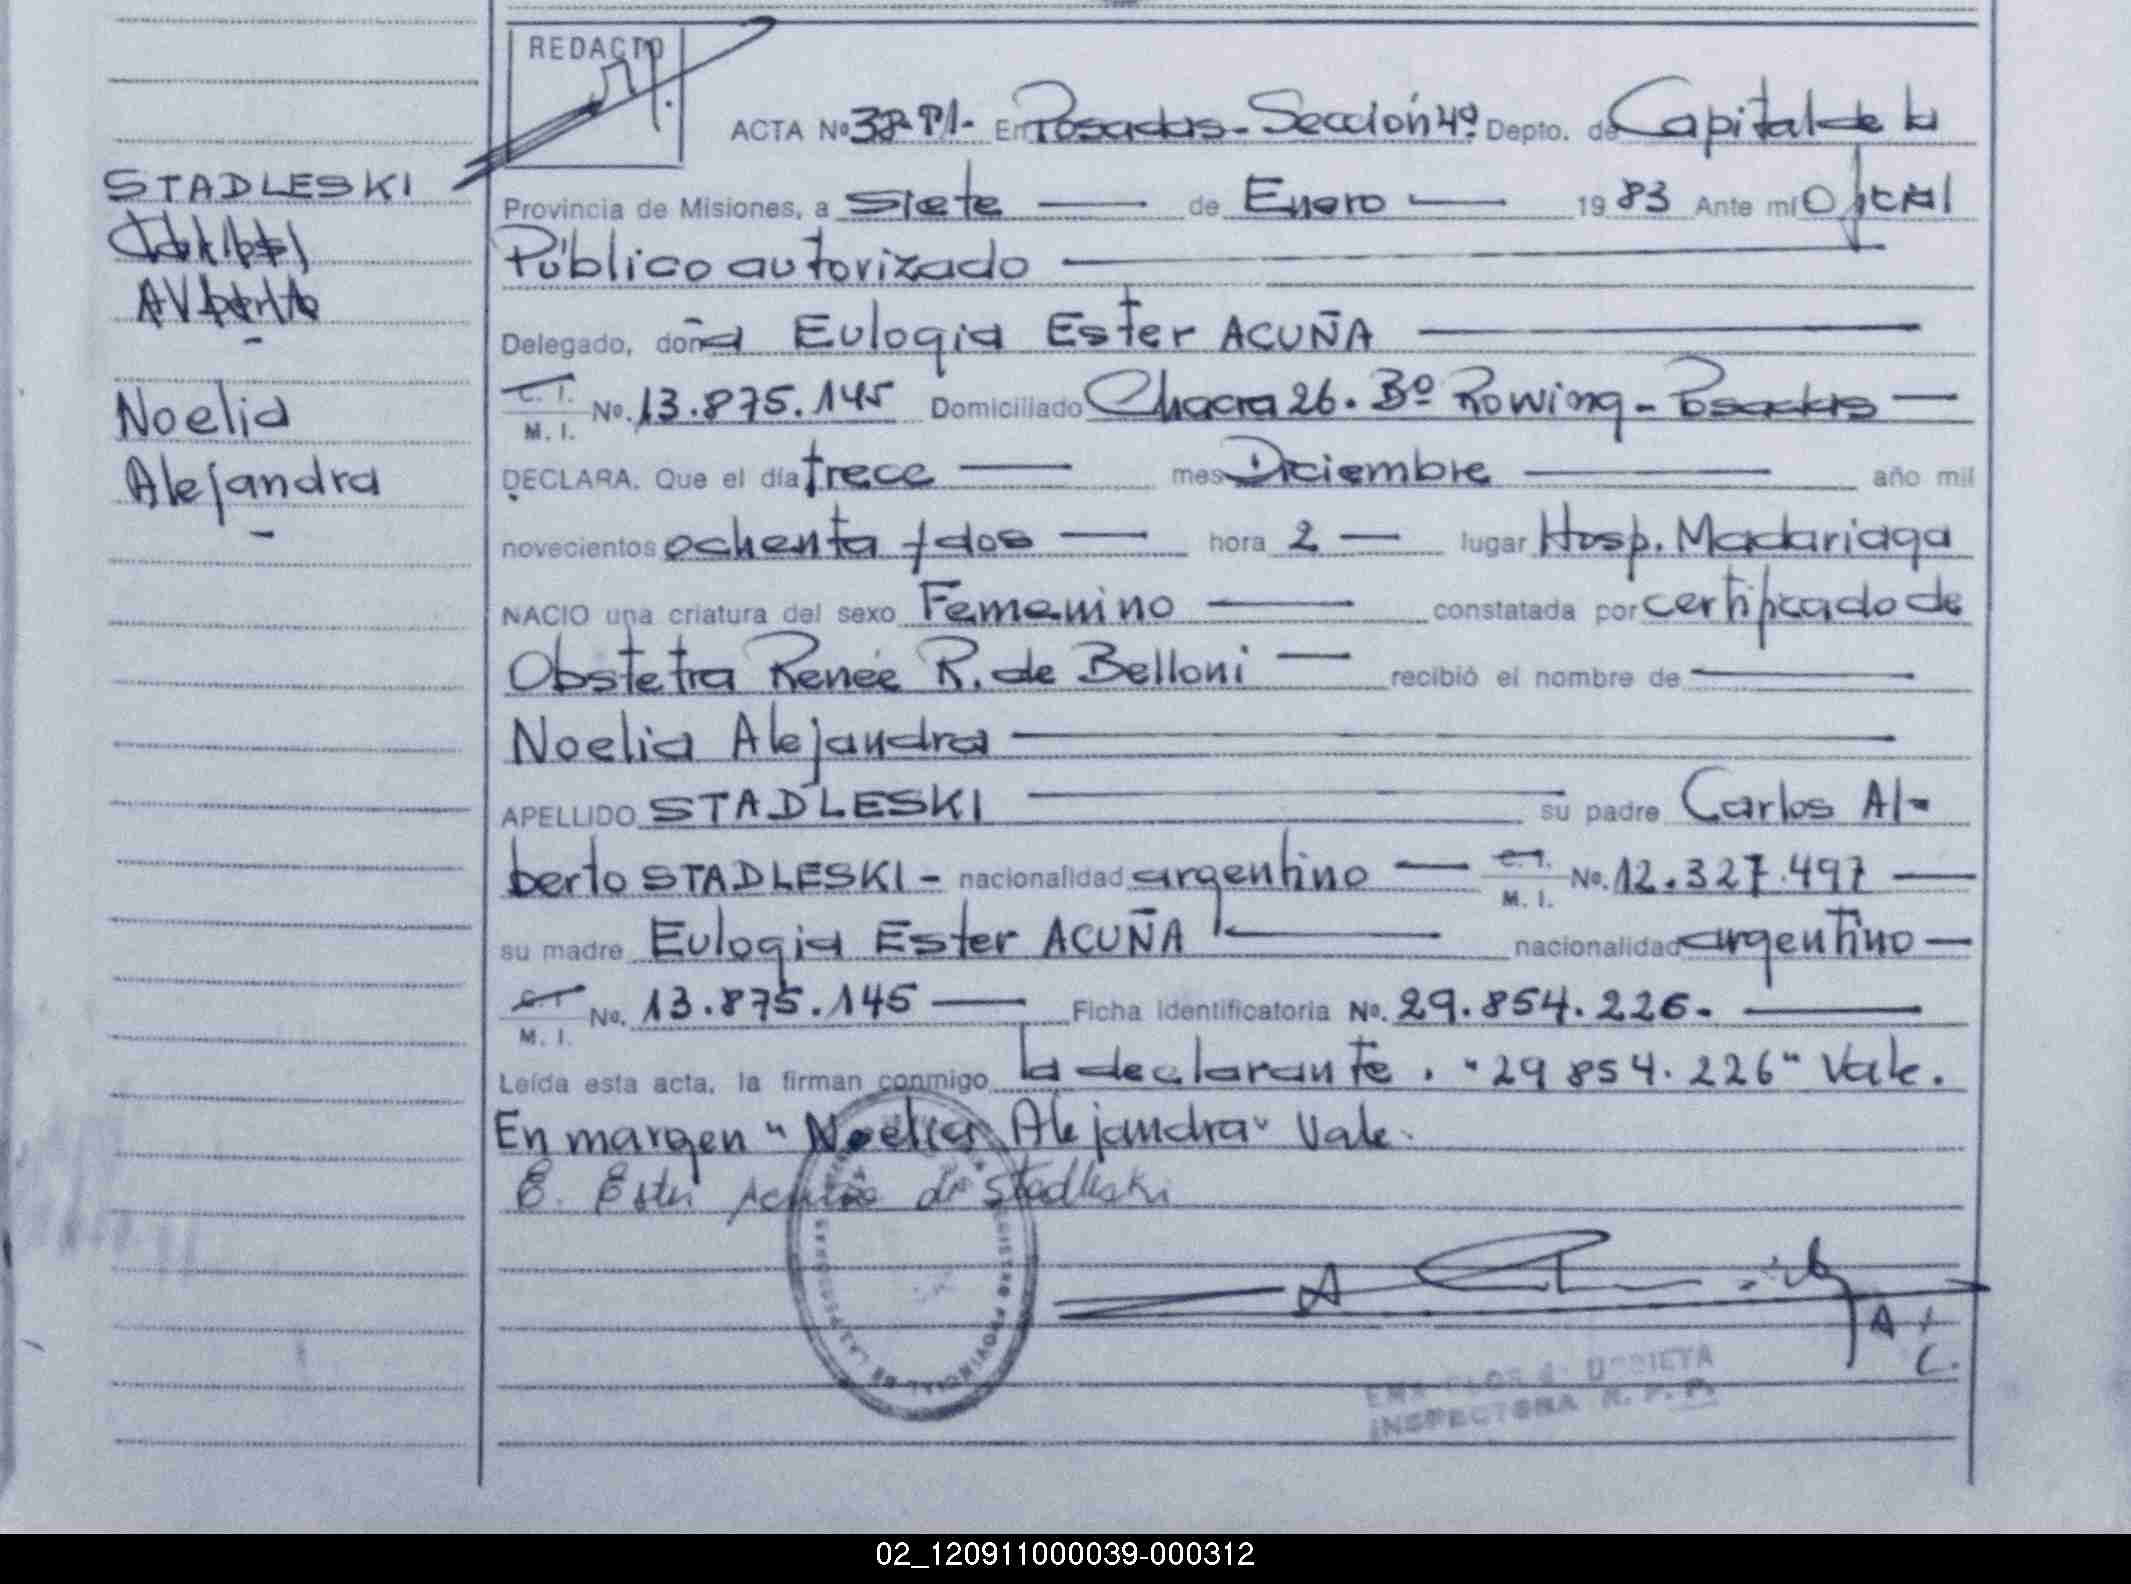 REDACTO
ACTA Nº En Posadas - Sección 4º Depto. de Capital de la
STADLESKI
Provincia de Misiones, a siete de Enero 1983 Ante mi Oficial
Público autorizado
Delegado, doña Eulogia Ester ACUÑA
C. I. M. I. No. 13.875.145 Domiciliado Chacra 26. Bº Rowing - Posadas
Noelia
DECLARA. Que el día trece mes Diciembre año mil
Alejandra
novecientos ochenta y dos hora 2 lugar Hosp. Madariaga
NACIO una criatura del sexo Femenino constatada por certificado de
Obstetra Renée R. de Belloni recibió el nombre de
Noelia Alejandra
APELLIDO STADLESKI su padre Carlos Al-
berto STADLESKI - nacionalidad argentino C. I. M. I. No. 12.327.497
su madre Eulogia Ester ACUÑA nacionalidad argentino
C. I. M. I. No. 13.875.145 Ficha identificatoria No. 29.854.226.
Leída esta acta, la firman conmigo la declarante. "29 854.226" Vale.
En margen "Noelia Alejandra" Vale.
E. Ester Acuña de Stadleski
REGISTRO PROVINCIAL DE LAS PERSONAS
INSPECTORA R. P. P.
02_120911000039-000312